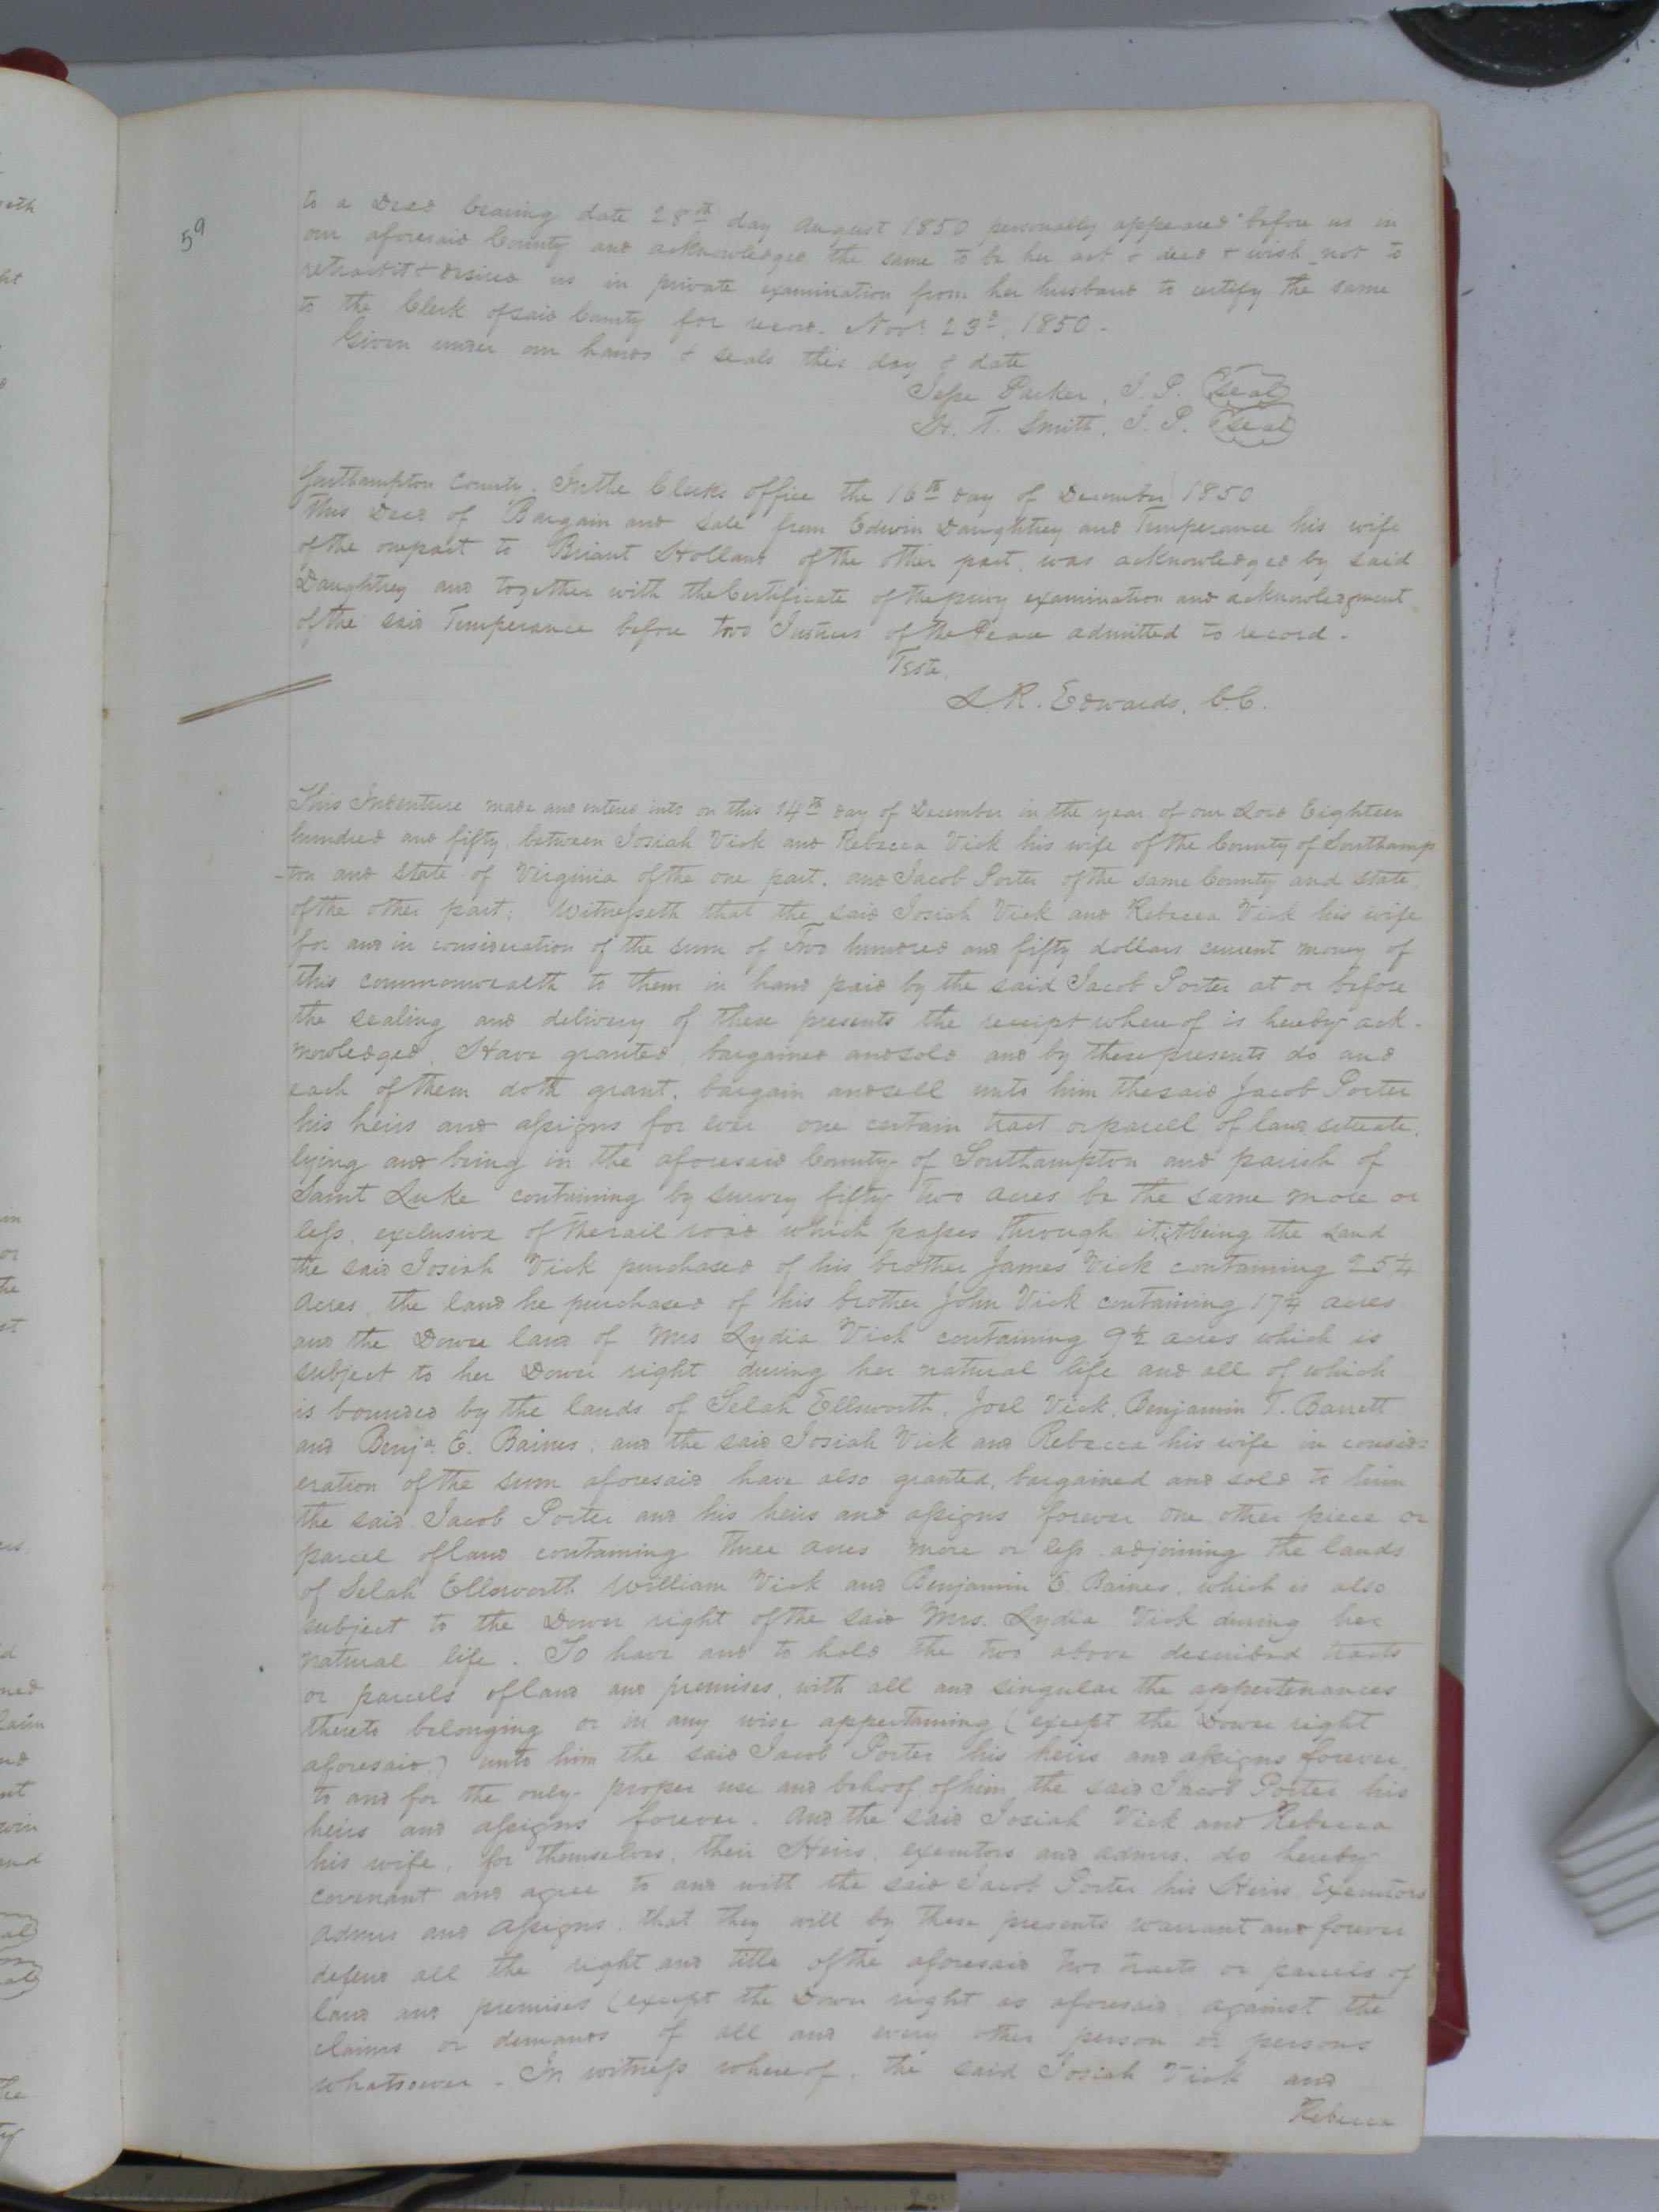 59
to a Deed bearing date 28th day August 1850 personally appeared before us in
our aforesaid County and acknowledged the same to be her act & deed & wish not to
retract it & desired us in private examination from her husband to certify the same
to the Clerk of said County for record. Novr 23d, 1850.
Given under our hands & seals this day & date
Jesse Parker, J. P. (seal)
H. T. Smith, J. P. (seal)
Southampton County. In the Clerks office the 16th day of December 1850
This Deed of Bargain and Sale from Edwin Daughtrey and Temperance his wife
of the one part to Briant Holland of the other part, was acknowledged by said
Daughtrey and together with the Certificate of the privy examination and acknowledgment
of the said Temperance before two Justices of the Peace admitted to record.
Teste,
L. R. Edwards, C.C.
This Indenture made and entered into on this 14th day of December in the year of our Lord Eighteen
hundred and fifty, between Josiah Vick and Rebecca Vick his wife of the County of Southamp
-ton and State of Virginia of the one part, and Jacob Porter of the same County and State
of the other part; Witnesseth that the said Josiah Vick and Rebecca Vick his wife
for and in consideration of the sum of Two hundred and fifty dollars current money of
this commonwealth to them in hand paid by the said Jacob Porter at or before
the sealing and delivery of these presents the receipt whereof is hereby ack-
nowledged, Have granted, bargained and sold and by these presents do and
each of them doth grant, bargain and sell unto him the said Jacob Porter
his heirs and assigns for ever one certain tract or parcell of land situate,
lying and being in the aforesaid County of Southampton and parish of
Saint Luke containing by survey fifty two acres be the same more or
less, exclusive of the rail road which passes through it, it being the land
the said Josiah Vick purchased of his brother James Vick containing 25 1/4
acres, the land he purchased of his brother John Vick containing 17 1/4 acres
and the Dower land of Mrs Lydia Vick containing 9 1/2 acres which is
subject to her Dower right during her natural life and all of which
is bounded by the lands of Selah Ellsworth, Joel Vick, Benjamin T. Barrett
and Benja. E. Baines; and the said Josiah Vick and Rebecca his wife in consid=
eration of the sum aforesaid have also granted, bargained and sold to him
the said Jacob Porter and his heirs and assigns forever one other piece or
parcel of land containing three acres more or less adjoining the lands
of Selah Ellsworth William Vick and Benjamin E. Baines, which is also
subject to the Dower right of the said Mrs. Lydia Vick during her
natural life. To have and to hold the two above described tracts
or parcels of land and premises, with all and singular the appertenances
thereto belonging or in any wise appertaining (except the Dower right
aforesaid) unto him the said Jacob Porter his heirs and assigns forever,
to and for the only proper use and behoof of him the said Jacob Porter his
heirs and assigns forever. And the said Josiah Vick and Rebecca
his wife, for themselves, their Heirs, executors and admrs. do hereby
covenant and agree to and with the said Jacob Porter his Heirs Executors
admrs and assigns, that they will by these presents warrant and forever
defend all the right and title of the aforesaid two tracts or parcels of
land and premises (except the Dower right as aforesaid, against the
claims or demands of all and every other person or persons
whatsoever. In witness whereof, the said Josiah Vick and
Rebecca